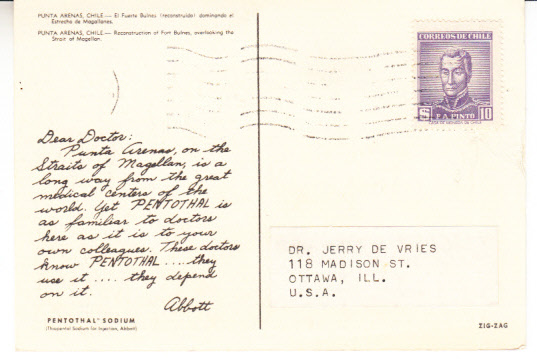 PUNTA ARENAS, CHILE — El Fuerte Bulnes (reconstruido) dominando el
Estrecho de Magallanes.
PUNTA ARENAS, CHILE — Reconstruction of Fort Bulnes, overlooking the
Strait of Magellan.
CORREOS DE CHILE
$ 10
F. A. PINTO
CASA DE MONEDA DE CHILE
Dear Doctor:
Punta Arenas, on the
Straits of Magellan, is a
long way from the great
medical centers of the
world. Yet PENTOTHAL is
as familiar to doctors
here as it is to your
own colleagues. These doctors
know PENTOTHAL .... they
use it .... they depend
on it.
Abbott
PENTOTHAL® SODIUM
(Thiopental Sodium for Injection, Abbott)
DR. JERRY DE VRIES
118 MADISON ST.
OTTAWA, ILL.
U.S.A.
ZIG-ZAG